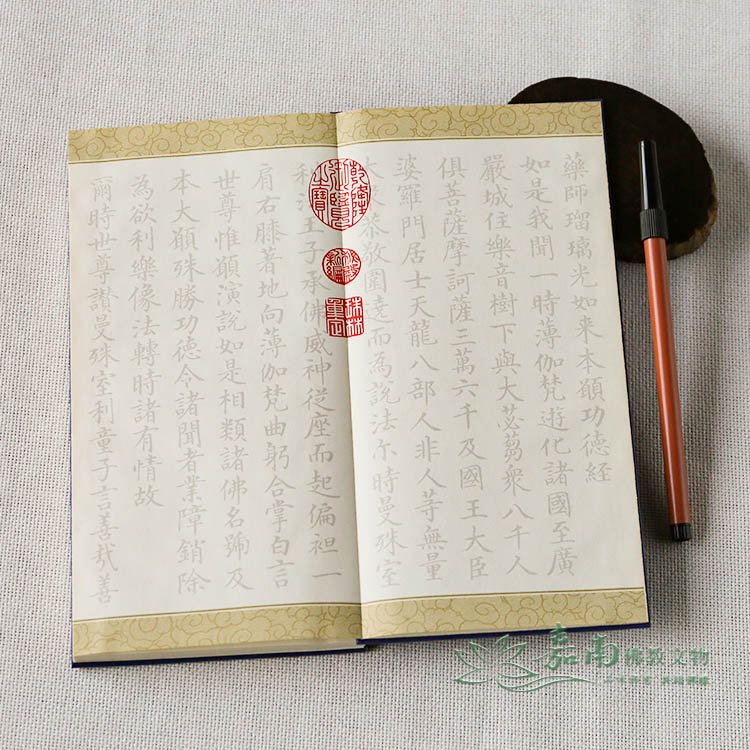 藥師瑠璃光如来本願功德經
如是我聞一時薄伽梵遊化諸國至廣
嚴城住樂音樹下與大苾蒭衆八千人
俱菩薩摩訶薩三萬六千及國王大臣
婆羅門居士天龍八部人非人等無量
大衆恭敬圍遶而為說法尔時曼殊室
利法王子承佛威神從座而起偏袒一
肩右膝著地向薄伽梵曲躬合掌白言
世尊惟願演說如是相類諸佛名號及
本大願殊勝功德令諸聞者業障銷除
為欲利樂像法轉時諸有情故
爾時世尊讚曼殊室利童子言善哉善
乾隆御覽之寶
珠林重定
嘉南佛教文物